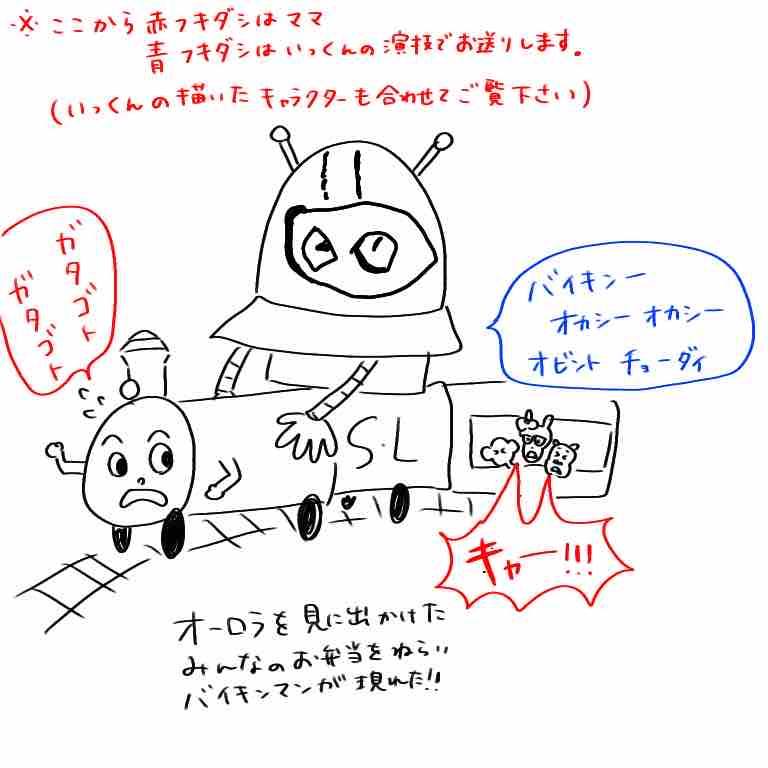 ※ ここから赤フキダシはママ
青フキダシはいっくんの演技でお送りします。
(いっくんの描いたキャラクターも合わせてご覧下さい)
ガタゴト
ガタゴト
バイキンー
オカシー オカシー
オビント チョーダイ
S.L
キャー!!!
オーロラを見に出かけた
みんなのお弁当をねらい
バイキンマンが現れた!!